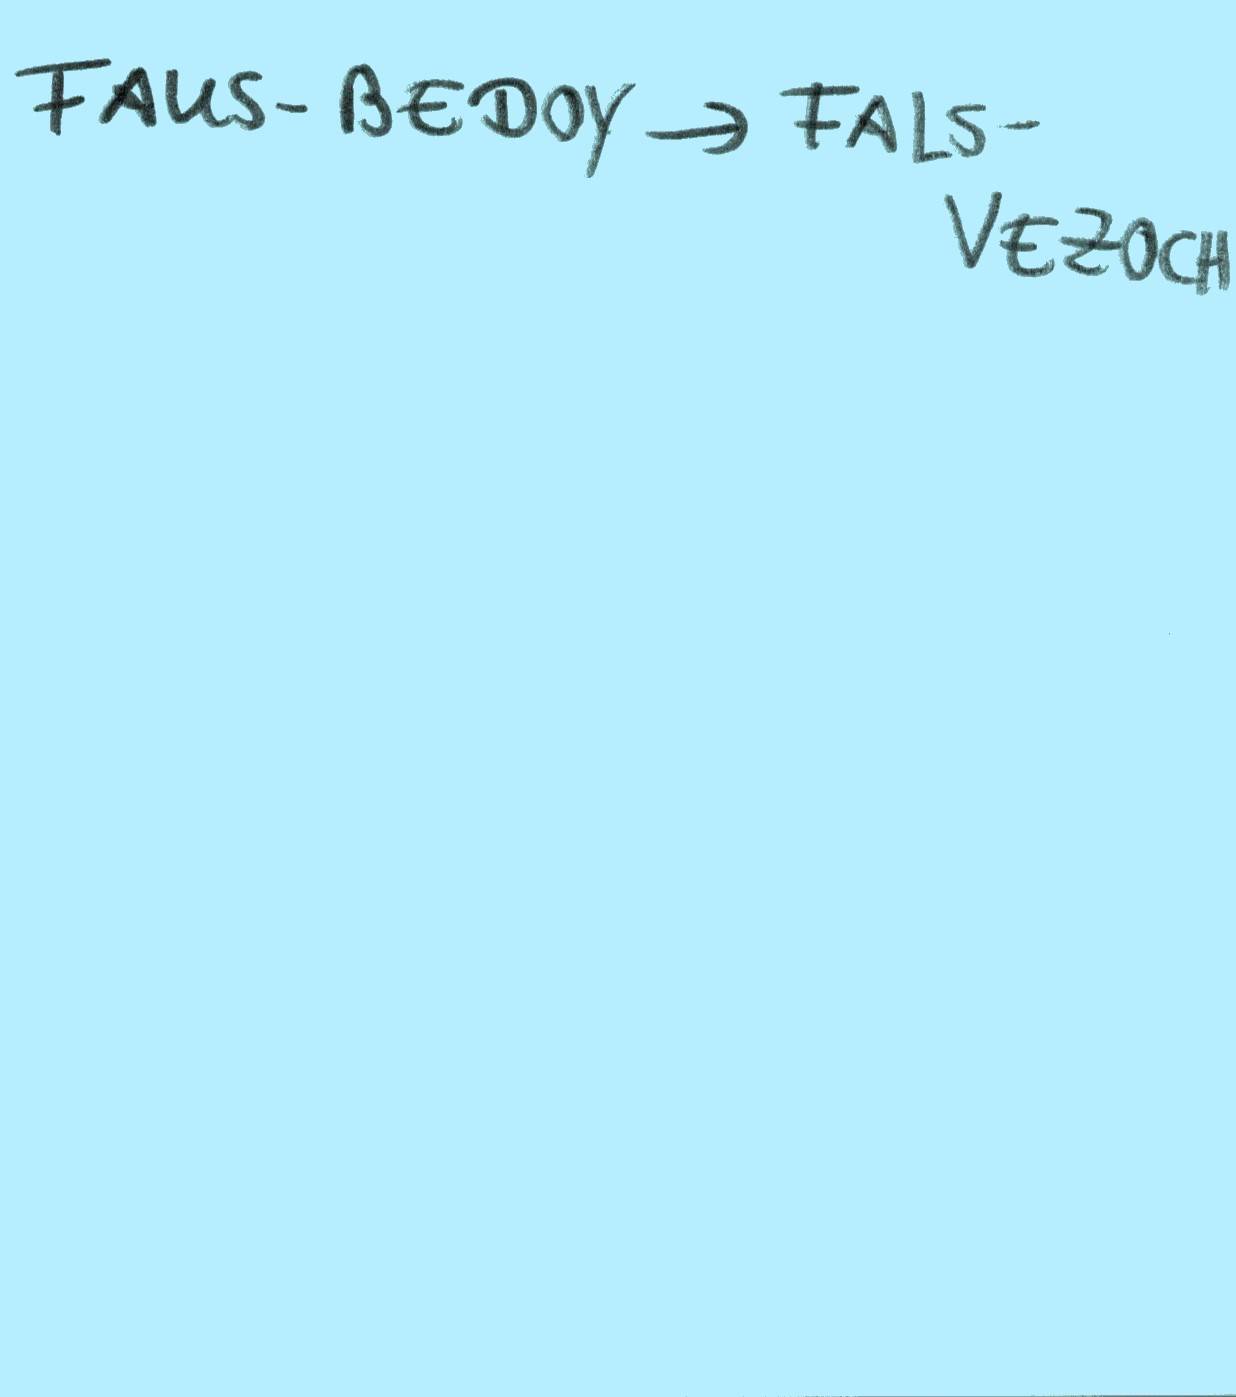 FAUS-BEDOY → FALS-
VEZOCH